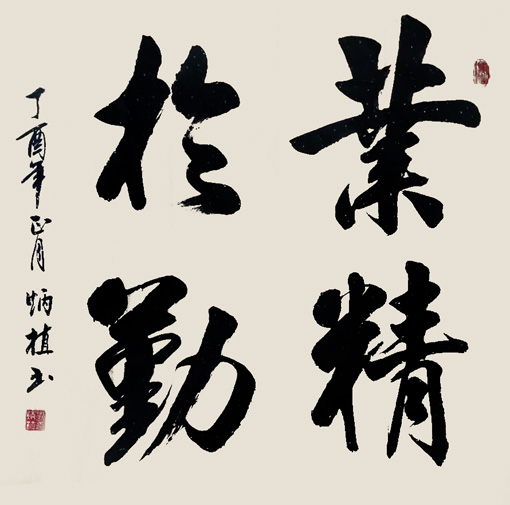 業精
於勤
丁酉年正月炳植书